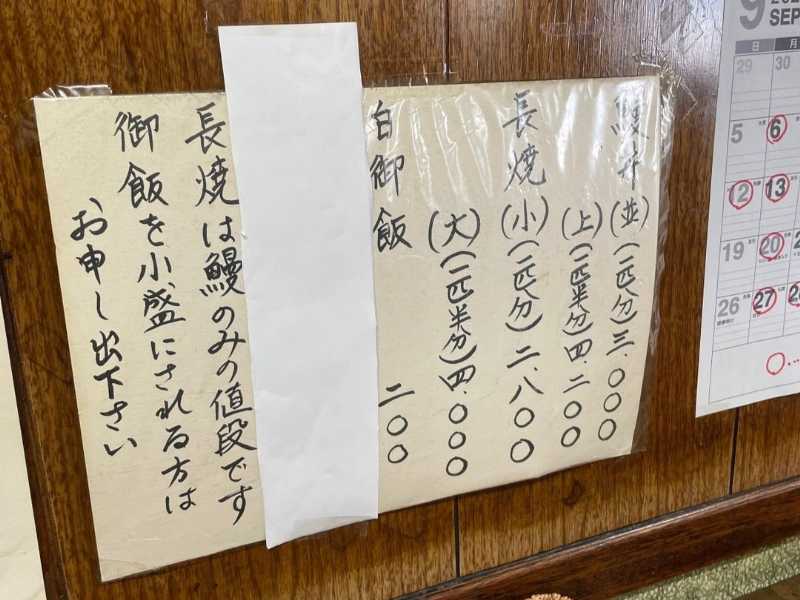 鰻丼(並)(一匹分)三、〇〇〇
(上)(一匹半分)四、二〇〇
長焼(小)(一匹分)二、八〇〇
(大)(一匹半分)四、〇〇〇
白御飯 二〇〇
長焼は鰻のみの値段です
御飯を小盛にされる方は
お申し出下さい
9
SEP
日 月
29 30
5 6
12 13
19 20
26 27